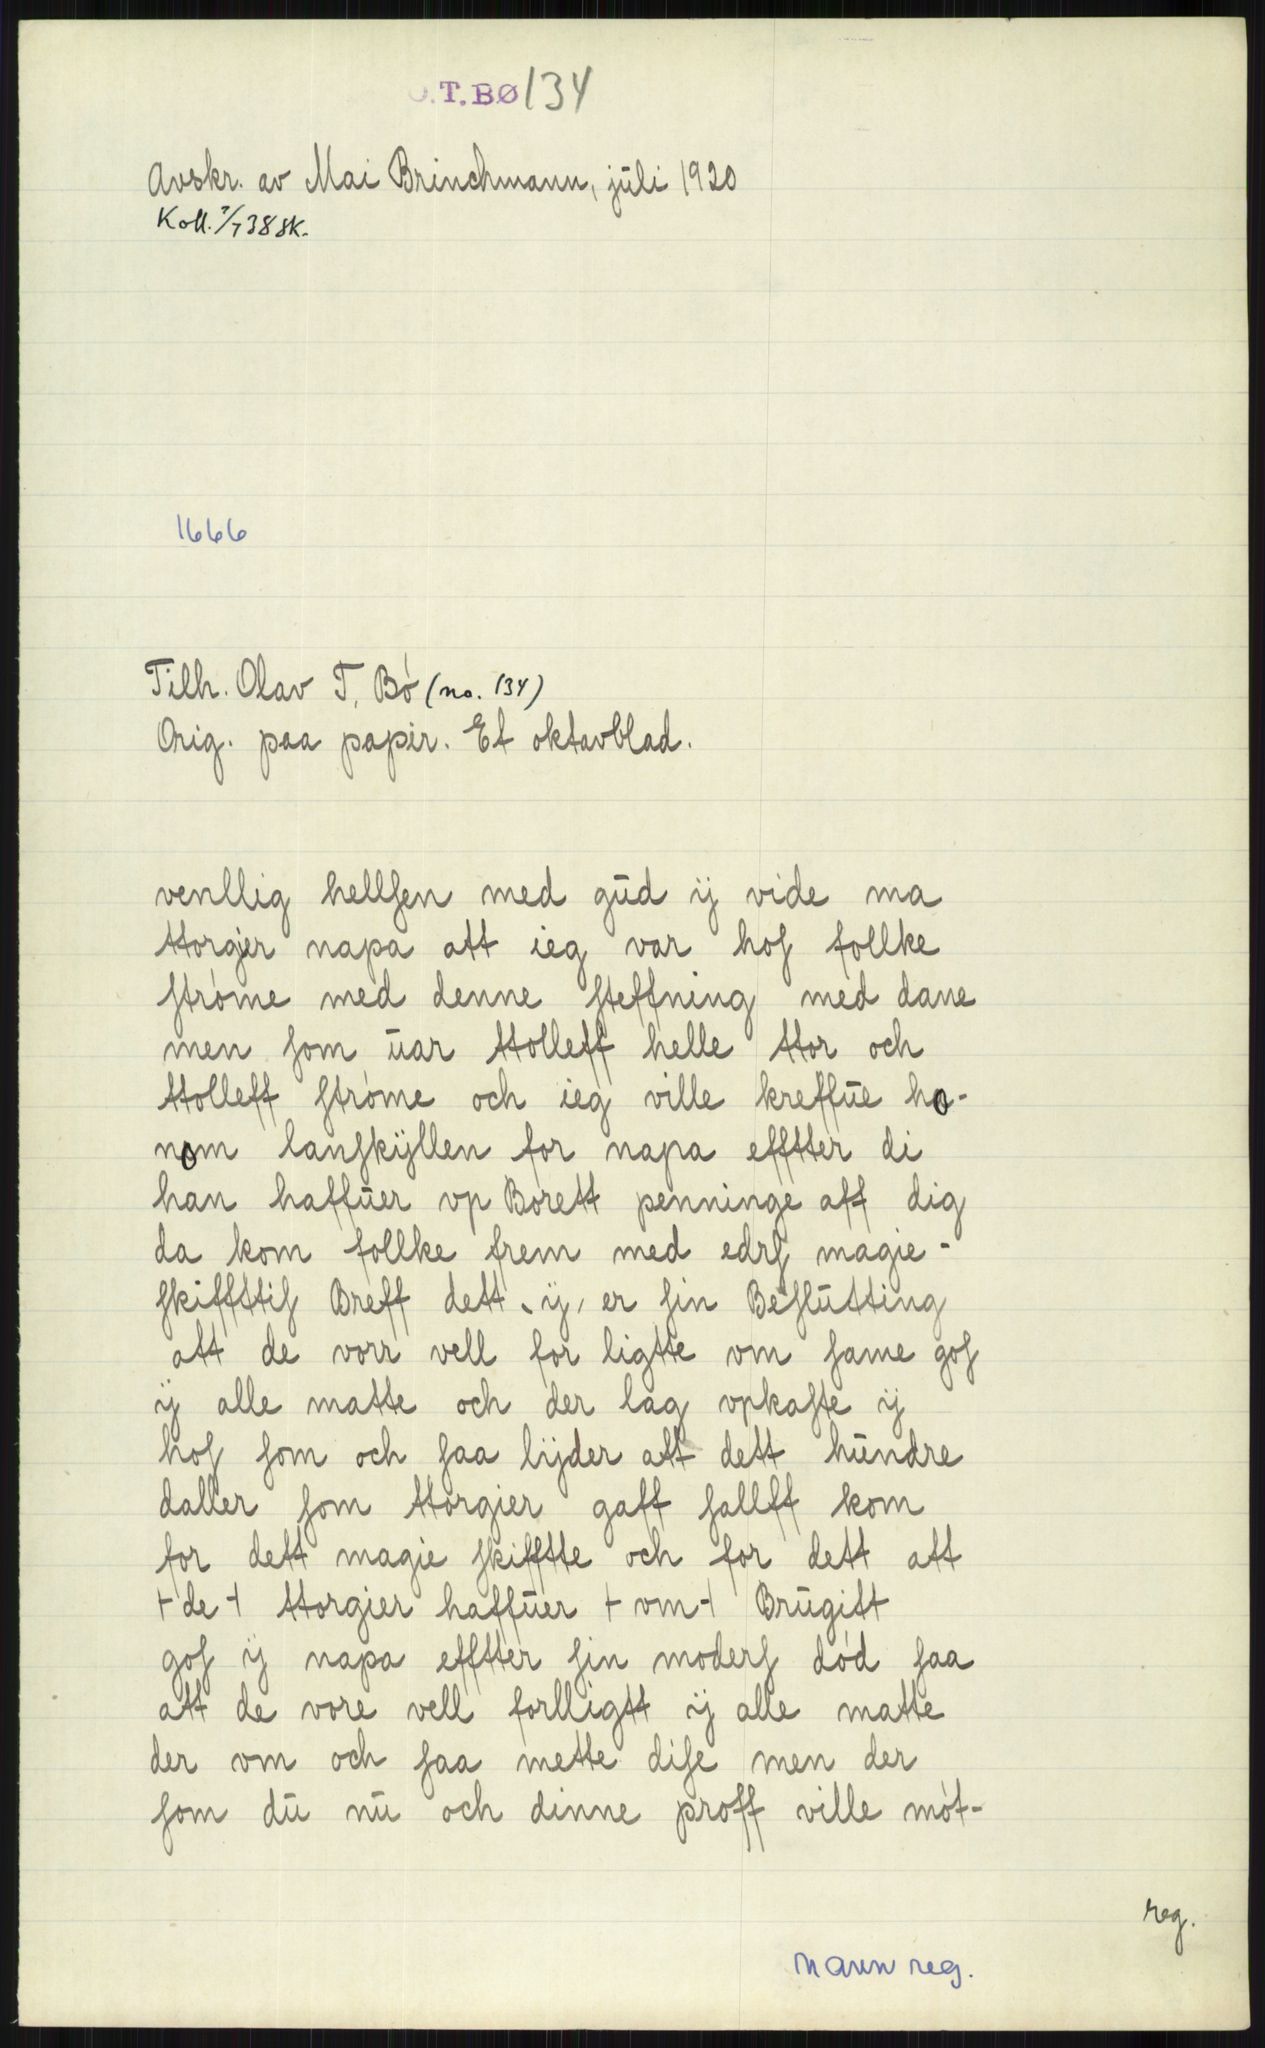 O.T.BØ 134
Avskr. av Mai Brinchmann, juli 1920
Koll. 7/7 38 SK.
1666
Tilh. Olav T. Bø (no. 134)
Orig. paa papir. Et oktavblad.
venllig hellſen med gud ij vide ma
ttorgier napa att ieg var hoſ follke
ſtróme med denne ſteffning med dane
men ſom uar ttolleff helle ttor och
ttolleff ſtróme och ieg ville kreffue ho-
nom lanſkÿllen for napa efftter di
han haffuer vp Borett penninge aff dig
da kom follke frem med edrſ magie-
ſkiffttiſ Breff dett ij er ſin Beſlutting
att de vorr vell for ligtte vm ſame goſ
ij alle matte och der lag vpkaſte ij
hoſ ſom och ſaa lijder att dett hundre
daller ſom ttorgier gaff ſallff kom
for dett magie ſkifftte och for dett att
⊢ de ⊣ ttorgier haffuer ⊢ vm ⊣ Brugitt
goſ ij napa efftter ſin moderſ dód ſaa
att de vore vell forlligtt ij alle matte
der vm och ſaa mette diſe men der
ſom du nu och dinne proff ville mót-
reg.
navn reg.